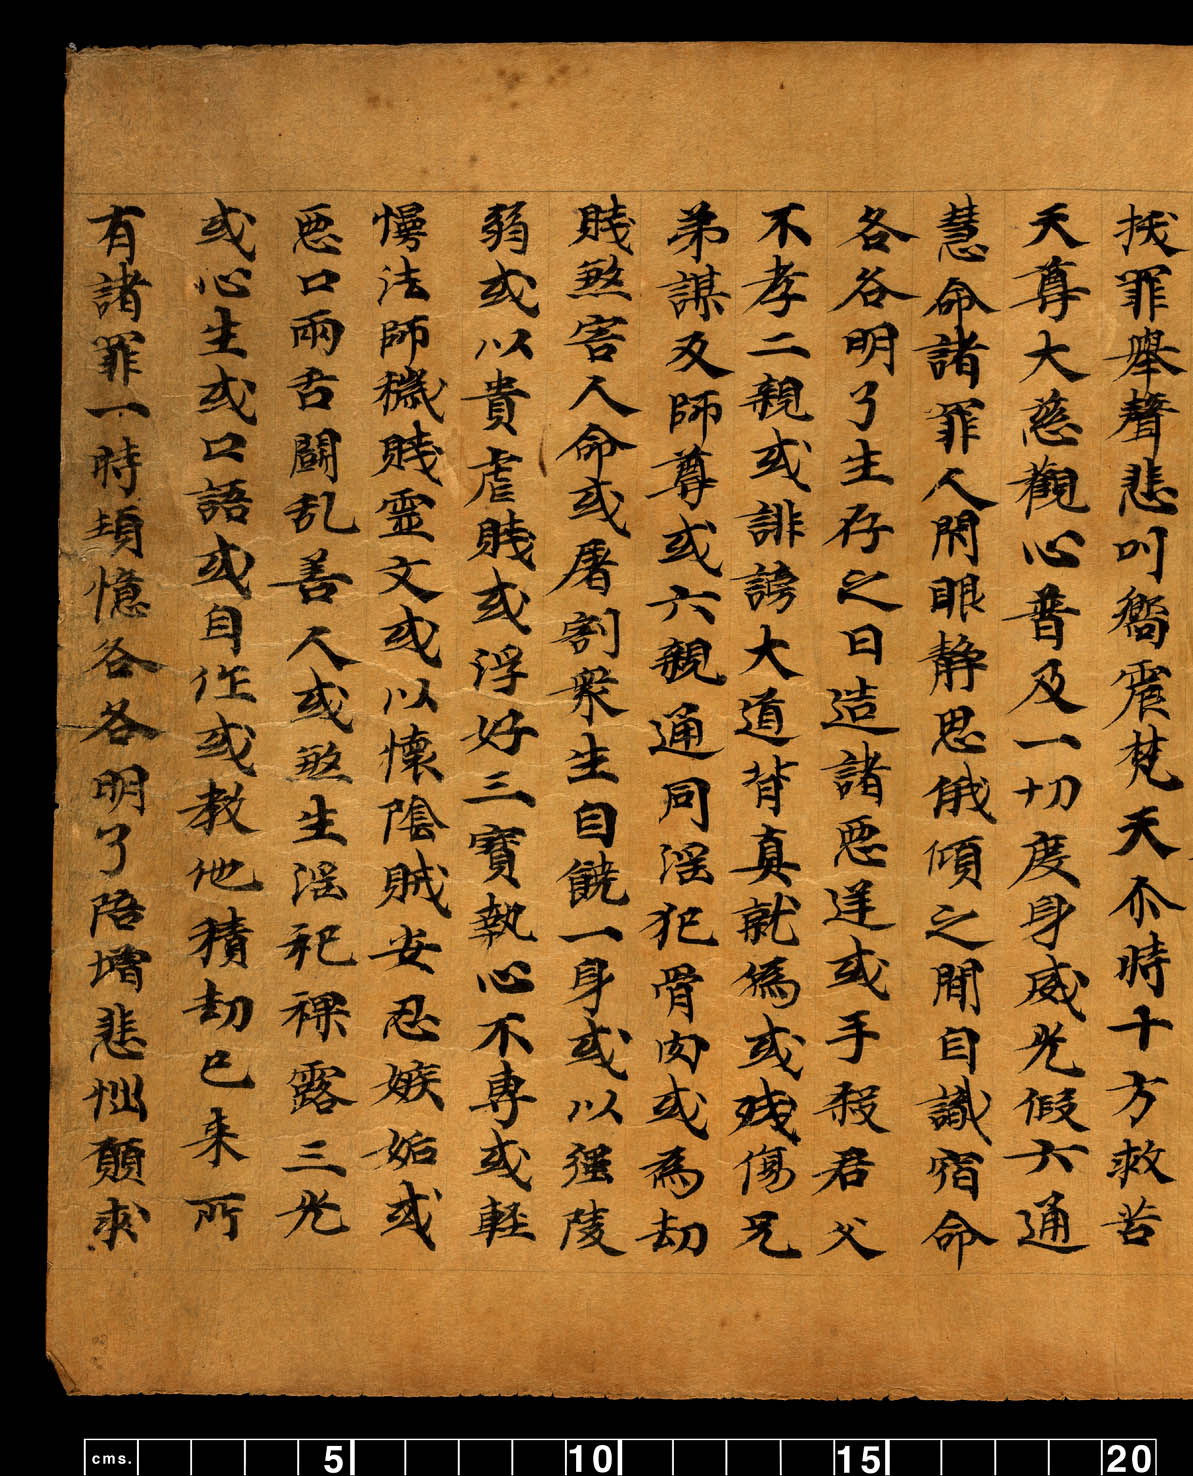 拔罪舉聲悲叫嚮震梵天尒時十方救苦
天尊大慈觀心普及一切度身威光假六通
慧命諸罪人閇眼静思俄傾之閒自識宿命
各各明了生存之日造諸惡逆或手殺君父
不孝二親或誹謗大道背真就偽或残傷兄
弟謀及師尊或六親通同淫犯骨肉或為劫
賊煞害人命或屠割衆生自饒一身或以強陵
弱或以貴虐賤或浮好三寳執心不專或軽
慢法師穢賤靈文或以懷陰賊安忍嫉妬或
惡口兩舌鬪乱善人或煞生淫祀裸露三光
或心生或口語或自作或教他積劫已来所
有諸罪一時頓憶各各明了陪增悲惱願求
cms. 5 10 15 20